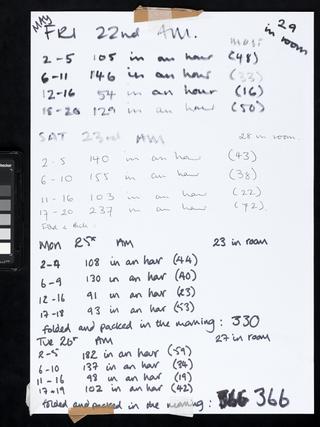 MAY
FRI 22nd AM.
29
in room
most
2-5 105 in an hour (48)
6-11 146 in an hour (33)
12-16 54 in an hour (16)
18-20 129 in an hour (50)
SAT 23rd AM
28 in room
2-5 140 in an hour (43)
6-10 155 in an hour (38)
11-16 103 in an hour (22)
17-20 237 in an hour (72)
Mon 25th AM 23 in room
2-4 108 in an hour (44)
6-9 130 in an hour (40)
12-16 91 in an hour (23)
17-18 93 in an hour (53)
folded and packed in the morning: 330
Tue 26th AM 27 in room
2-5 182 in an hour (59)
6-10 137 in an hour (34)
11-16 98 in an hour (19)
17-19 102 in an hour (42)
folded and packed in the morning: 366 366